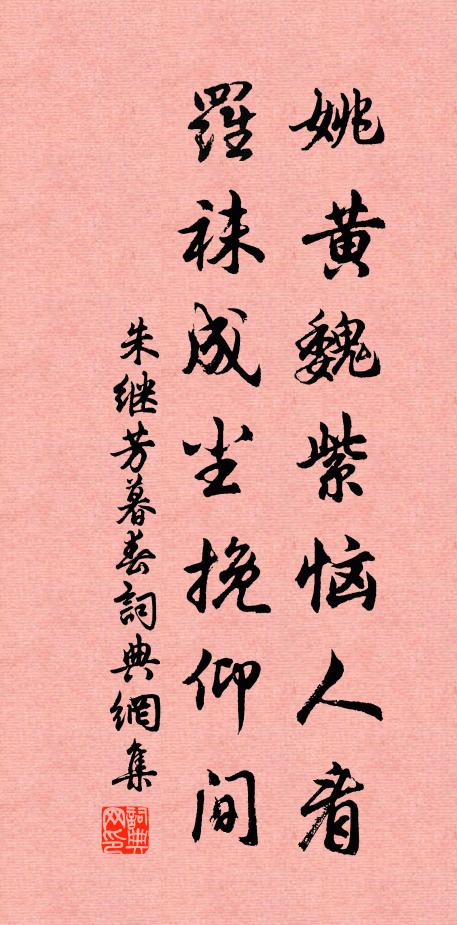 姚黄魏紫恼人看
羅袜成尘挽仰间
朱继芳暮春詞典網集
詞典
网印